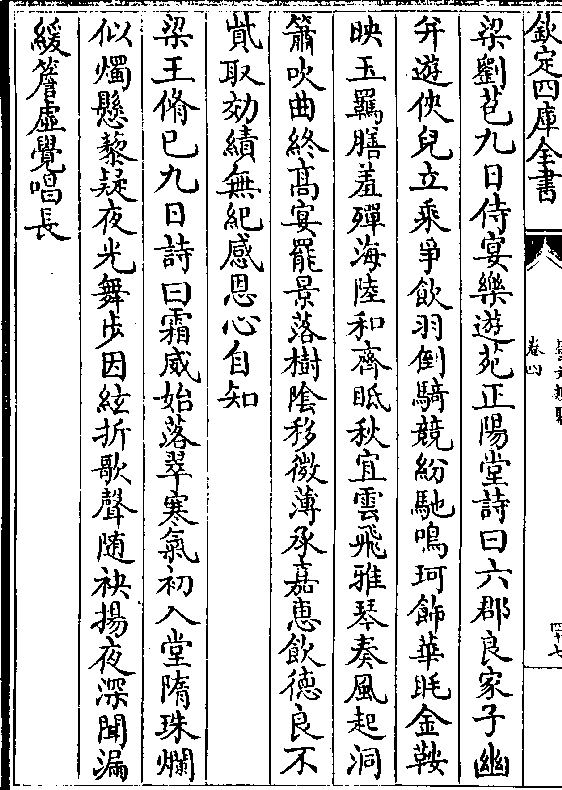 欽定四庫全書
卷四
梁劉苞九日侍宴樂遊苑正陽堂詩曰六郡良家子幽
并遊俠兒立乘爭飲羽倒騎競紛馳鳴珂飾華眊金鞍
映玉羈膳羞殫海陸和齊眡秋宜雲飛雅琴奏風起洞
簫吹曲終高宴罷景落樹陰移微薄承嘉惠飲德良不
貲取効績無紀感恩心自知
梁王脩已九日詩曰霜威始落翠寒氣初入堂隋珠爛
似燭懸黎疑夜光舞步因絃折歌聲随袂揚夜深聞漏
緩簷虛覺唱長